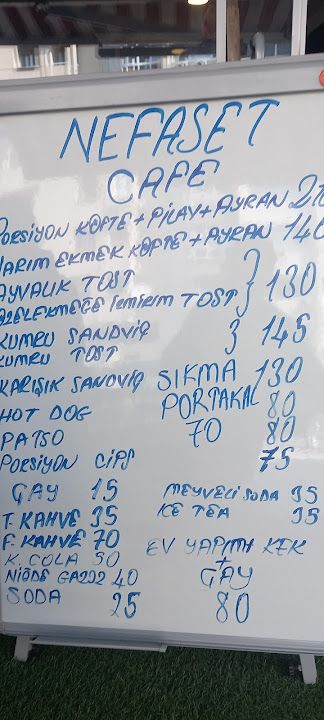 NEFASET
CAFE
PORSİYON KÖFTE+PİLAV+AYRAN 210
YARIM EKMEK KÖFTE + AYRAN 140
AYVALIK TOST } 130
TOST
KUMRU SANDVİÇ } 145
KUMRU TOST
KARIŞIK SANDVİÇ 130
SIKMA
PORTAKAL
70
HOT DOG 80
PATSO 80
PORSİYON CİPS 75
ÇAY 15
T. KAHVE 35
F. KAHVE 70
K. COLA 50
NİĞDE GAZOZ 40
SODA 25
MEYVELİ SODA 35
ICE TEA 35
EV YAPIMI KEK
+
ÇAY
80